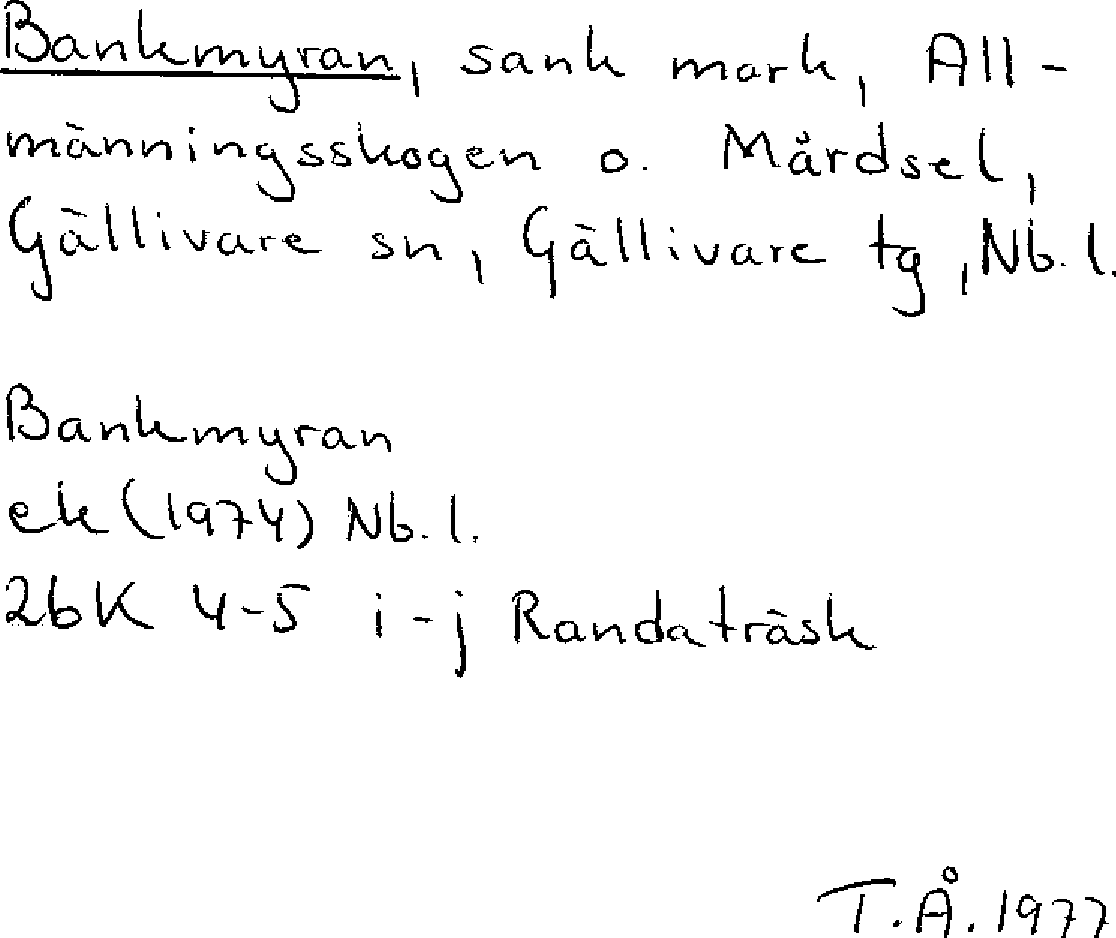 Bankmyran, sank mark, All-
männingsskogen o. Mårdsel,
Gällivare sn, Gällivare tg, Nb. l.
Bankmyran
ek (1974) Nb. l.
26K 4-5 i-j Randaträsk
T.Å. 1977